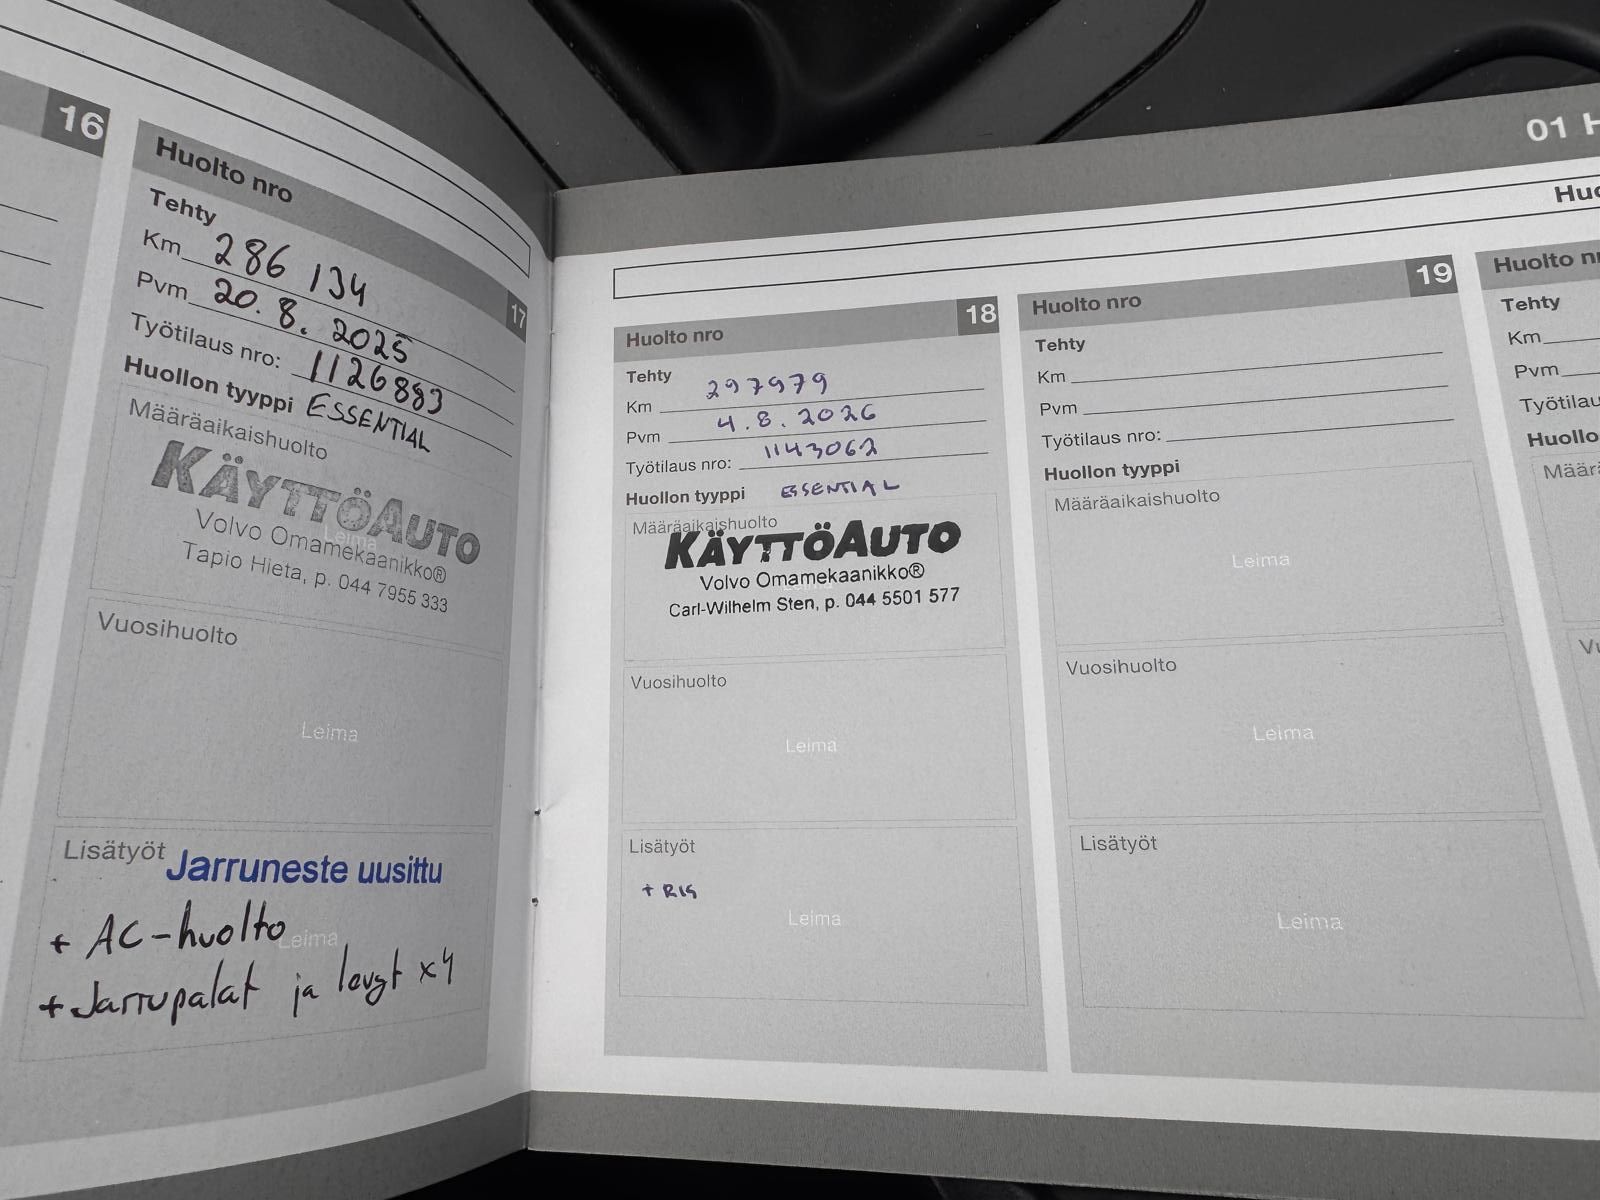 16
Huolto nro 17
Tehty
Km 286 134
Pvm 20.8.2025
Työtilaus nro: 1126883
Huollon tyyppi ESSENTIAL
Määräaikaishuolto
KÄYTTÖAUTO
Leima
Volvo Omamekaanikko®
Tapio Hieta, p. 044 7955 333
Vuosihuolto
Leima
Lisätyöt Jarruneste uusittu
+ AC-huolto
Leima
+ Jarrupalat ja levyt x4
01 H
Huo
Huolto nro 18
Tehty
Km 297979
Pvm 4.8.2026
Työtilaus nro: 1143062
Huollon tyyppi ESSENTIAL
Määräaikaishuolto
KÄYTTÖAUTO
Volvo Omamekaanikko®
Carl-Wilhelm Sten, p. 044 5501 577
Vuosihuolto
Leima
Lisätyöt
+ RIS
Leima
Huolto nro 19
Tehty
Km
Pvm
Työtilaus nro:
Huollon tyyppi
Määräaikaishuolto
Leima
Vuosihuolto
Leima
Lisätyöt
Leima
Huolto nr
Tehty
Km
Pvm
Työtilau
Huollo
Määrä
Vu